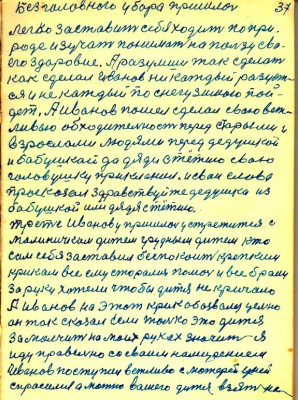 Безголовного убора пришлос 37
Легко заставит себя ходит по при-
роде изучат понимат на ползу сво-
его здаровие. А разумши так сделат
как сделал Иванов ни каждый разует-
ся и не каждый по снегу зимою пой-
дет. А Иванов пошел сделал свою веж-
ливыю обходителност перед старыми и
взрослами людями перед дедушкой
и бабушкай да дядя з тётшю свою
головушку приклонял. и свои слова
просказал здравствуйте дедушка из
бабушкой или дядя з тётшю.
Иванову пришлос устретится с
малиничкам дитём грудным дитём кто
сам себя заставил беспокоит крепким
крикам все ему старалис помоч и все брали
за руки хотели чтобы дитя не кричало
А Иванов на этот крик обозвалса
он так сказал если толко это дитя
замолчит на моих руках значит я
иду правелно со своим намерением
Иванов поступил вежливо с матерей
спрасилса а можно вашего дитя взят на